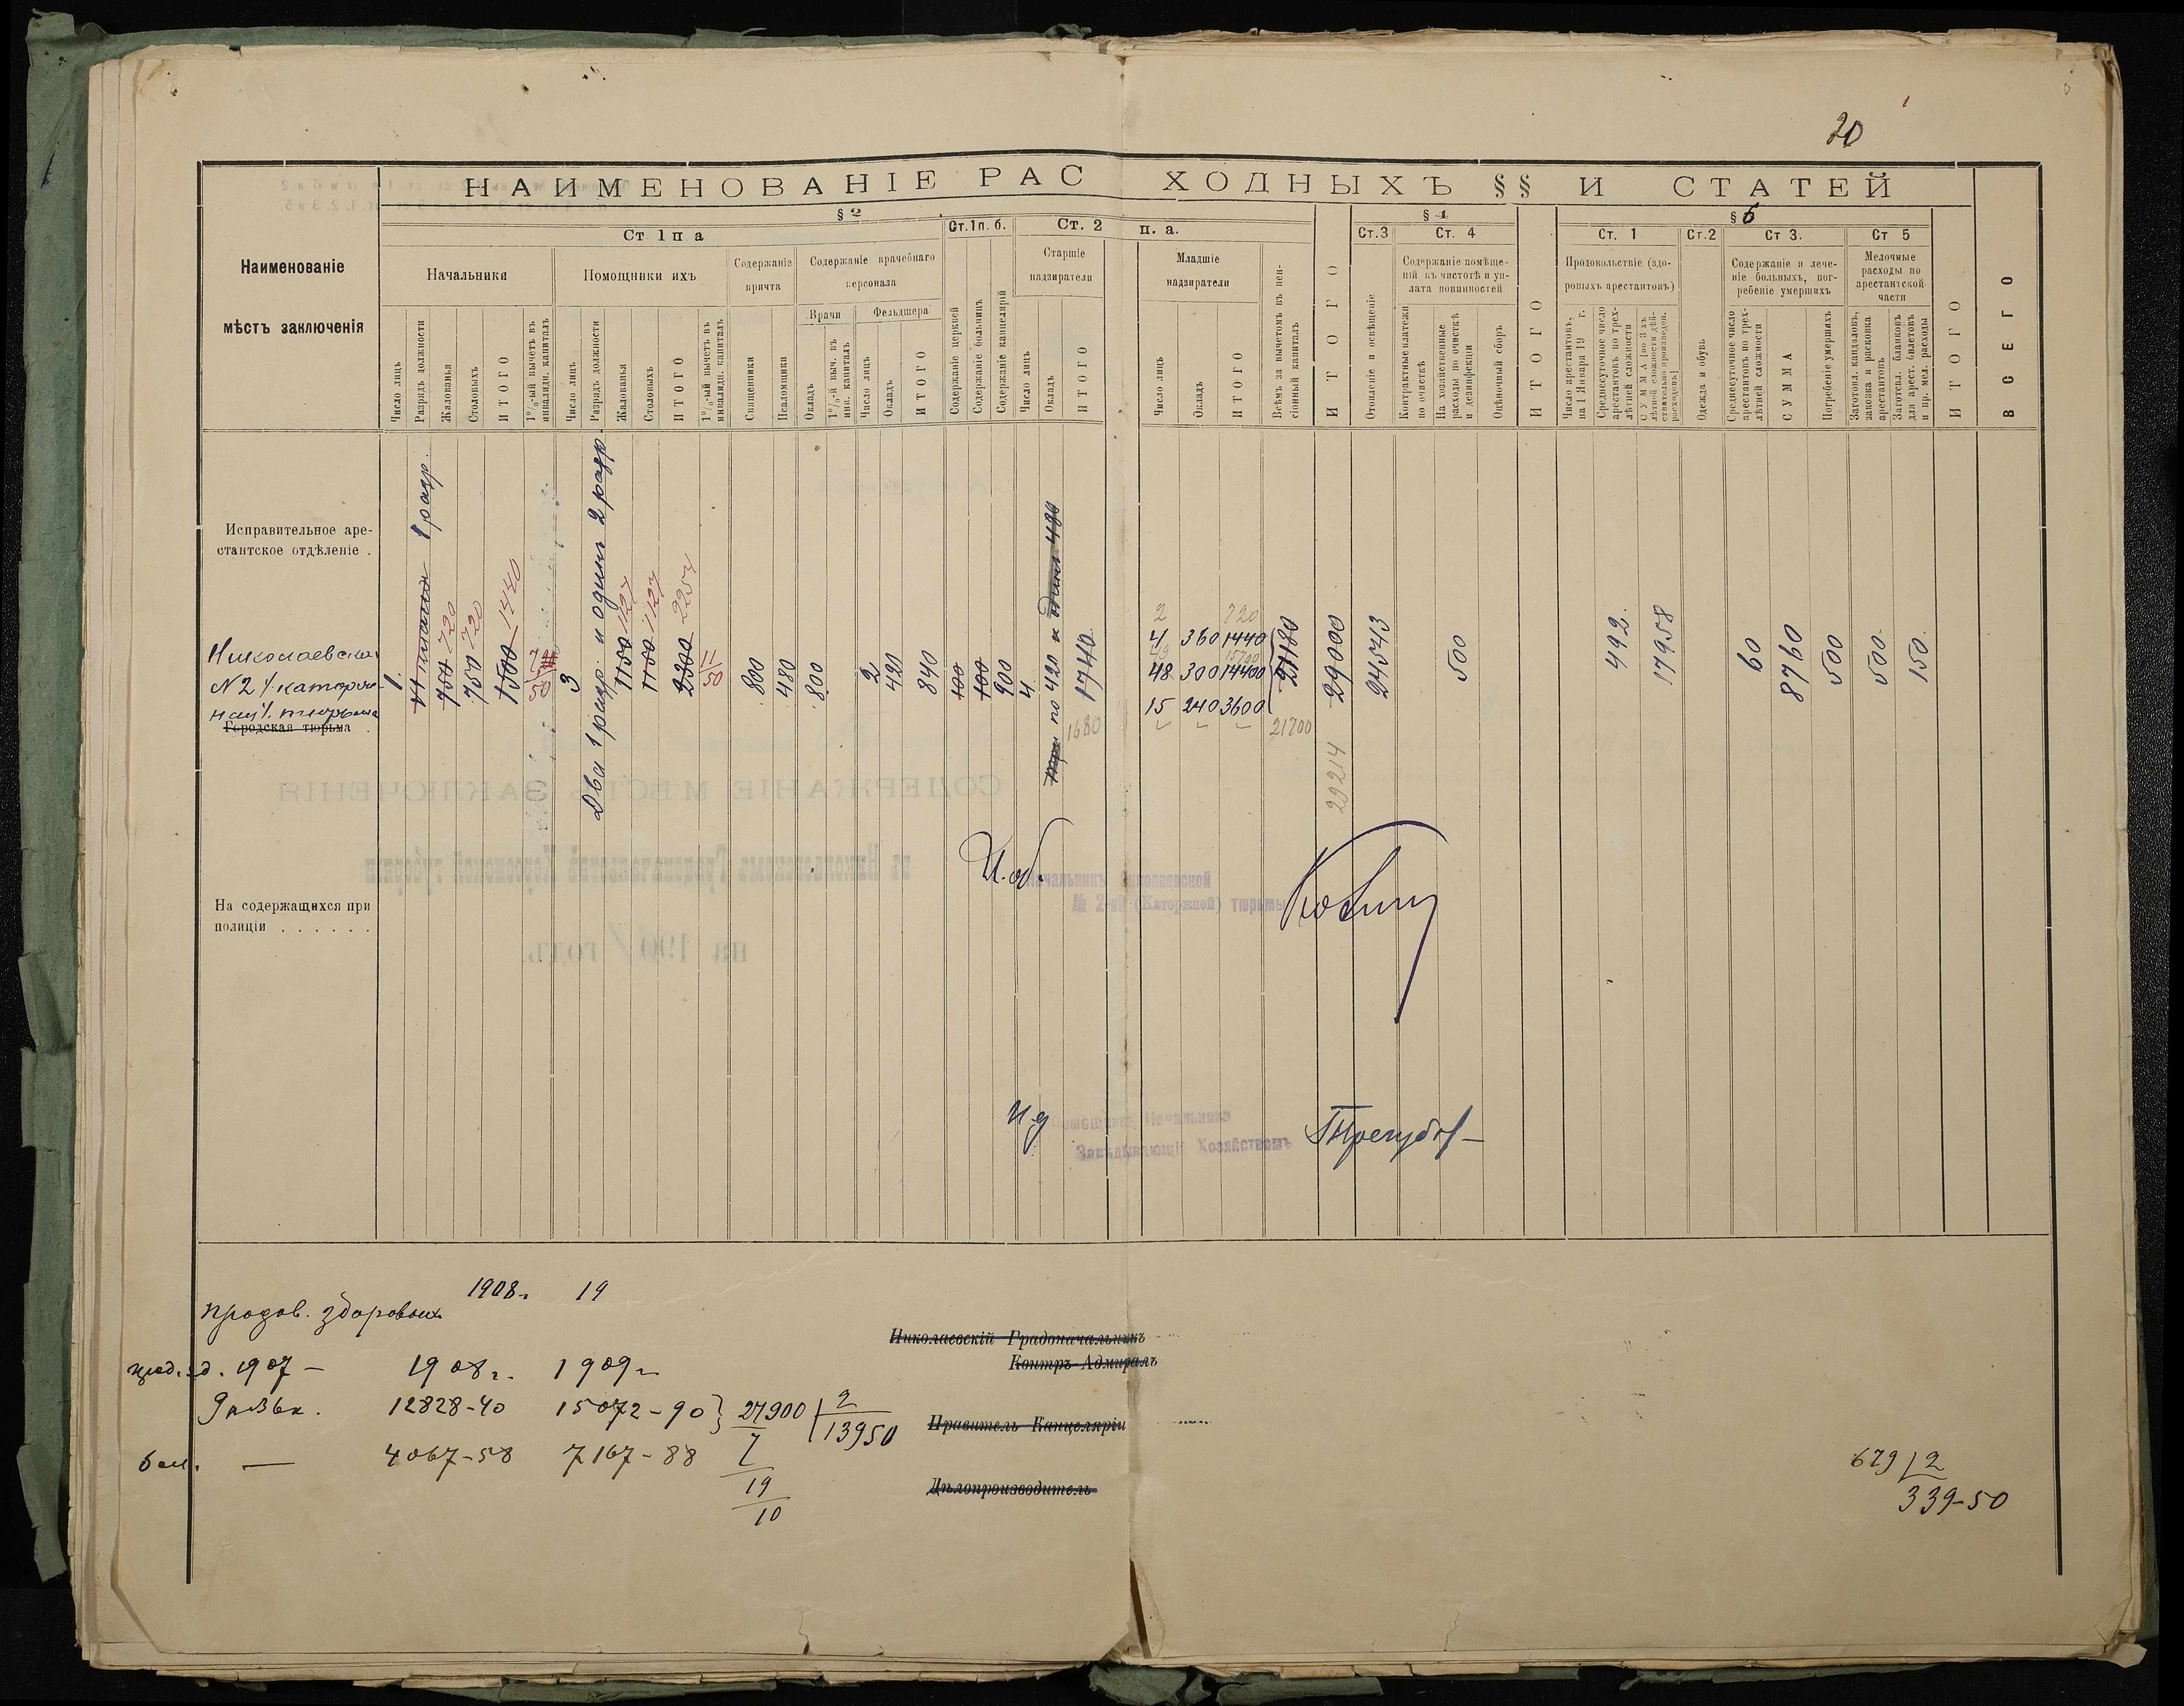 20
НАИМЕНОВАНІЕ РАСХОДНЫХЪ §§ И СТАТЕЙ
Наименованіе
мѣстъ заключенія
§ 2
Ст 1 п а
Ст. 1 п. б.
Ст. 2 п. а.
Начальники
Помощники ихъ
Содержаніе
причта
Содержаніе врачебнаго
персонала
Врачи
Фельдшера
Старшіе
надзиратели
Младшіе
надзиратели
Число лицъ
Разрядъ должности
Жалованья
Столовыхъ
ИТОГО
1%-ый вычетъ въ
инвалидн. капиталъ
Число лицъ
Разрядъ должности
Жалованья
Столовыхъ
ИТОГО
1%-ый вычетъ въ
инвалидн. капиталъ
Священники
Псаломщики
Окладъ
1%-й выч. въ
инв. капиталъ
Число лицъ
Окладъ
ИТОГО
Содержаніе церквей
Содержаніе больницъ
Содержаніе канцелярій
Число лицъ
Окладъ
ИТОГО
Число лицъ
Окладъ
ИТОГО
Всѣмъ за вычетомъ въ пен-
сіонный капиталъ
ИТОГО
§ 4
Ст. 3
Ст. 4
Отопленіе и освѣщеніе
Содержаніе помѣще-
ній въ чистотѣ и уп-
лата повинностей
Контрактные платежи
по очисткѣ
На хозяйственные
расходы по очисткѣ
и дезинфекціи
Оцѣночный сборъ
ИТОГО
§ 6
Ст. 1
Ст. 2
Ст 3.
Ст 5
Продовольствіе (здо-
ровыхъ арестантовъ)
Содержаніе и лече-
ніе больныхъ, пог-
ребеніе умершихъ
Мелочные
расходы по
арестантской
части
Число арестантовъ,
на 1 Января 19 г.
Среднесуточное число
арестантовъ по трех-
лѣтней сложности
СУММА [по 3 хъ
лѣтней сложности дѣй-
ствительно произведен.
расходовъ]
Одежда и обувь
Среднесуточное число
арестантовъ по трех-
лѣтней сложности
СУММА
Погребеніе умершихъ
Заготовл. кандаловъ,
заковка и расковка
арестантовъ
Заготовл. бланковъ
для арест. билетовъ
и пр. мел. расходы
ИТОГО
ВСЕГО
Исправительное аре-
стантское отдѣленіе .
Николаевская
№ 2 / каторж-
ная / тюрьма
Городская тюрьма .
1.
1 разр.
750 720
750 720
1500 1440
3
Два 1 разр. и одинъ 2 разр.
1150 1127
1150 1127
2300 2254
50
800
480
800
2
420
840
100
100
900
4
три по 420 и одинъ 480
1740
1680
2 720
4 360 1440
49 15700
48 300 14400
15 240 3600
21180
21700
29000
29214
24543
500
492.
17958
60
8760
500
500
150
На содержащихся при
полиціи . . . . . .
И. об.
Начальникъ Николаевской
№ 2-й (Каторжной) тюрьмы
И д
Помощникъ Начальника
Завѣдывающій Хозяйствомъ
1908 г. 19
продов. здоровыхъ
1907 — 1908 г. 1909 г.
12828-40 15072-90 } 27900 | 2
13950
7
4067-58 7167-88
19
10
Николаевскій Градоначальникъ
Контръ-Адмиралъ
Правитель Канцеляріи
Дѣлопроизводитель
679 | 2
339-50